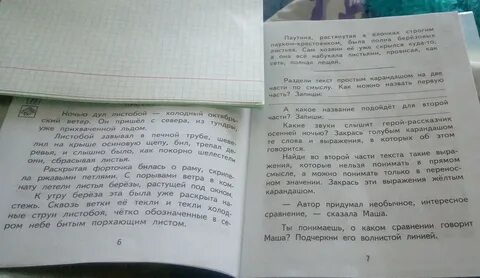 Ночью дул листобой — холодный октябрь-
ский ветер. Он пришёл с севера, из тундры,
уже прихваченной льдом.
Листобой завывал в печной трубе, шеве-
лил на крыше осиновую щепу, бил, трепал де-
ревья, и слышно было, как покорно шелестели
они, сбрасывая листья.
Раскрытая форточка билась о раму, скрипе-
ла ржавыми петлями. С порывами ветра в ком-
нату летели листья берёзы, растущей под окном.
К утру берёза эта была уже раскрыта на-
стежь. Сквозь ветки её текли и текли холод-
ные струи листобоя, чётко обозначенные в се-
ром небе битым порхающим листом.
6
Паутина, растянутая в ёлочках строгим
пауком-крестовиком, была полна берёзовых
листьев. Сам хозяин её уже скрылся куда-то,
а она всё набухала листьями, провисая, как
сеть, полная лещей.
Раздели текст простым карандашом на две
части по смыслу. Как можно назвать первую
часть? Запиши:
А какое название подойдёт для второй
части? Запиши:
Какие звуки слышит герой-рассказчик
осенней ночью? Закрась голубым карандашом
те слова и выражения, в которых об этом
говорится.
Найди во второй части текста такие выра-
жения, которые нельзя понимать в прямом
смысле, а можно понимать только в перенос-
ном значении. Закрась эти выражения жёлтым
карандашом.
— Автор придумал необычное, интересное
сравнение, — сказала Маша.
Ты понимаешь, о каком сравнении говорит
Маша? Подчеркни его волнистой линией.
7